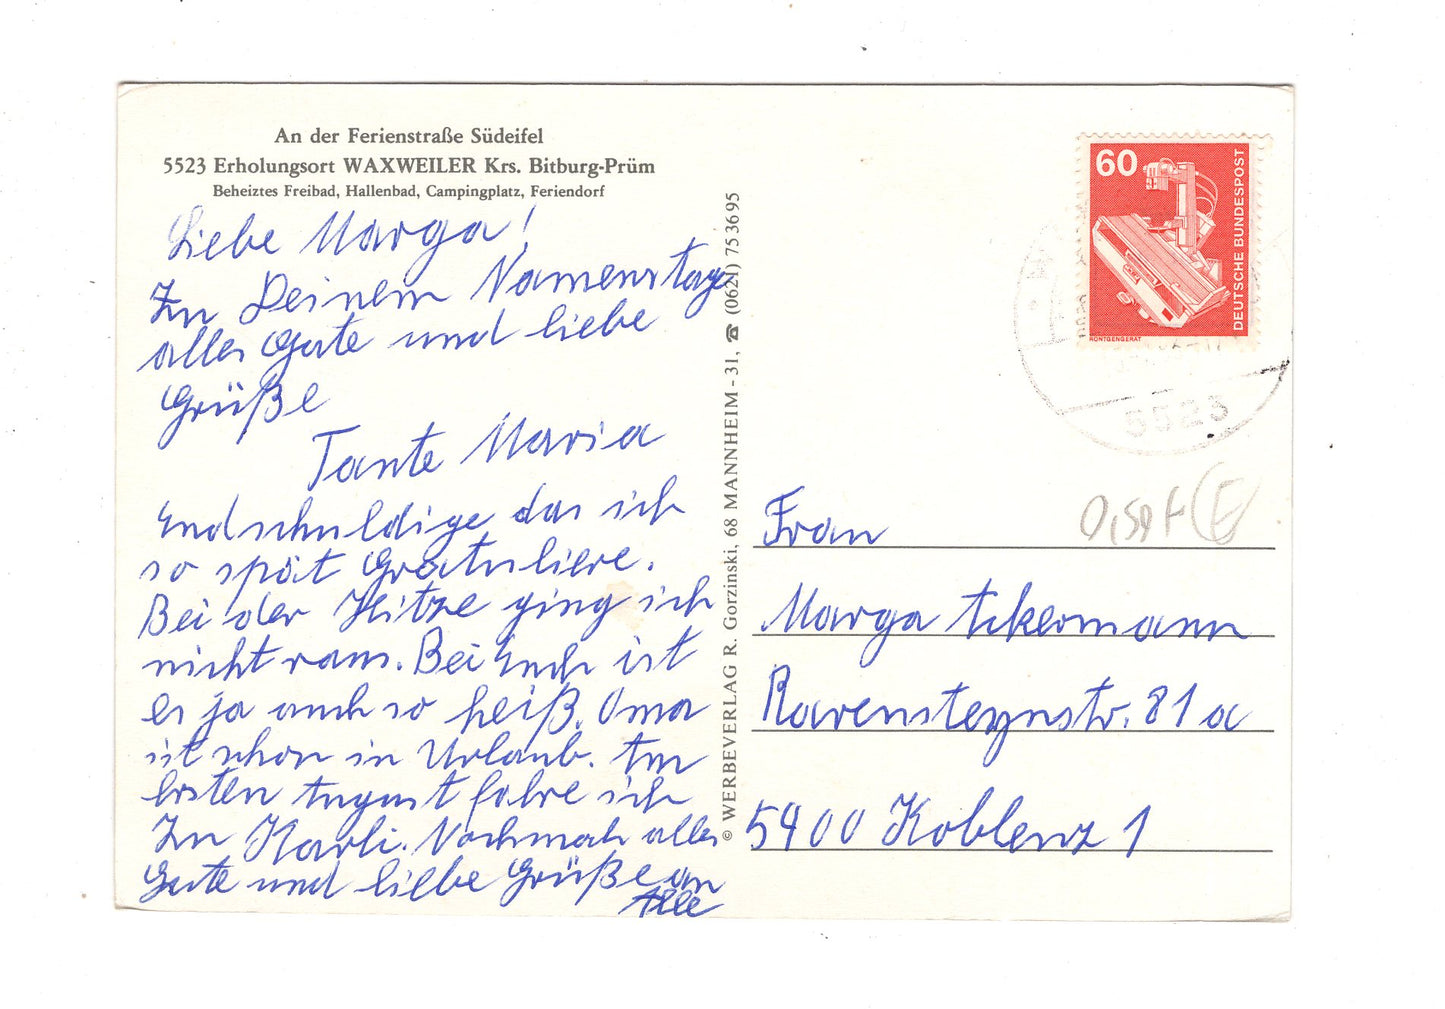 An der Ferienstraße Südeifel
5523 Erholungsort WAXWEILER Krs. Bitburg-Prüm
Beheiztes Freibad, Hallenbad, Campingplatz, Feriendorf
Liebe Marga!
Zu Deinem Namenstage
alles Gute und liebe
Grüße
Tante Maria
Endschuldige das ich
so spät Gratuliere.
Bei der Hitze ging ich
nicht raus. Bei Euch ist
es ja auch so heiß. Oma
ist schon in Urlaub. Am
ersten August fahre ich
Zu Karli. Nochmals alles
Gute und liebe Grüße an
Alle
© WERBEVERLAG R. Gorzinski, 68 MANNHEIM - 31, ☎ (0621) 753695
60
DEUTSCHE BUNDESPOST
RÖNTGENGERÄT
5523
Frau
Marga Ackermann
Ravensteynstr. 81 a
5400 Koblenz 1